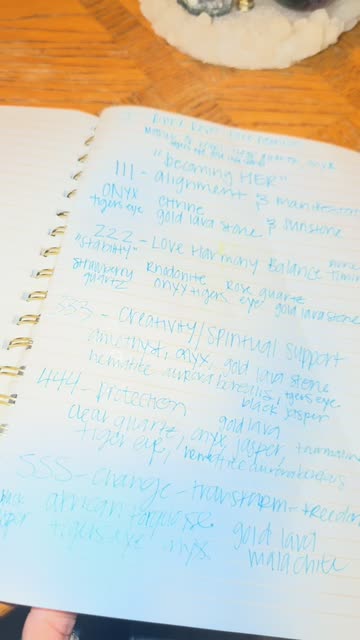 "becoming HER"
111 - alignment & manifestation
ONYX citrine
tigers eye gold lava stone & sunstone
222 - Love Harmony Balance
"stability" Timing
strawberry Rhodonite Rose quartz
quartz onyx tigers eye, gold lava stone
333 - creativity/spiritual support
amethyst, onyx, gold lava stone
hematite aurora borealis, tigers eye
black jasper
444 - protection gold lava
clear quartz, onyx, jasper, tourmaline
tiger eye, hematite aurora borealis
555 - change - transform - freedom
african turquoise gold lava
tigers eye onyx malachite